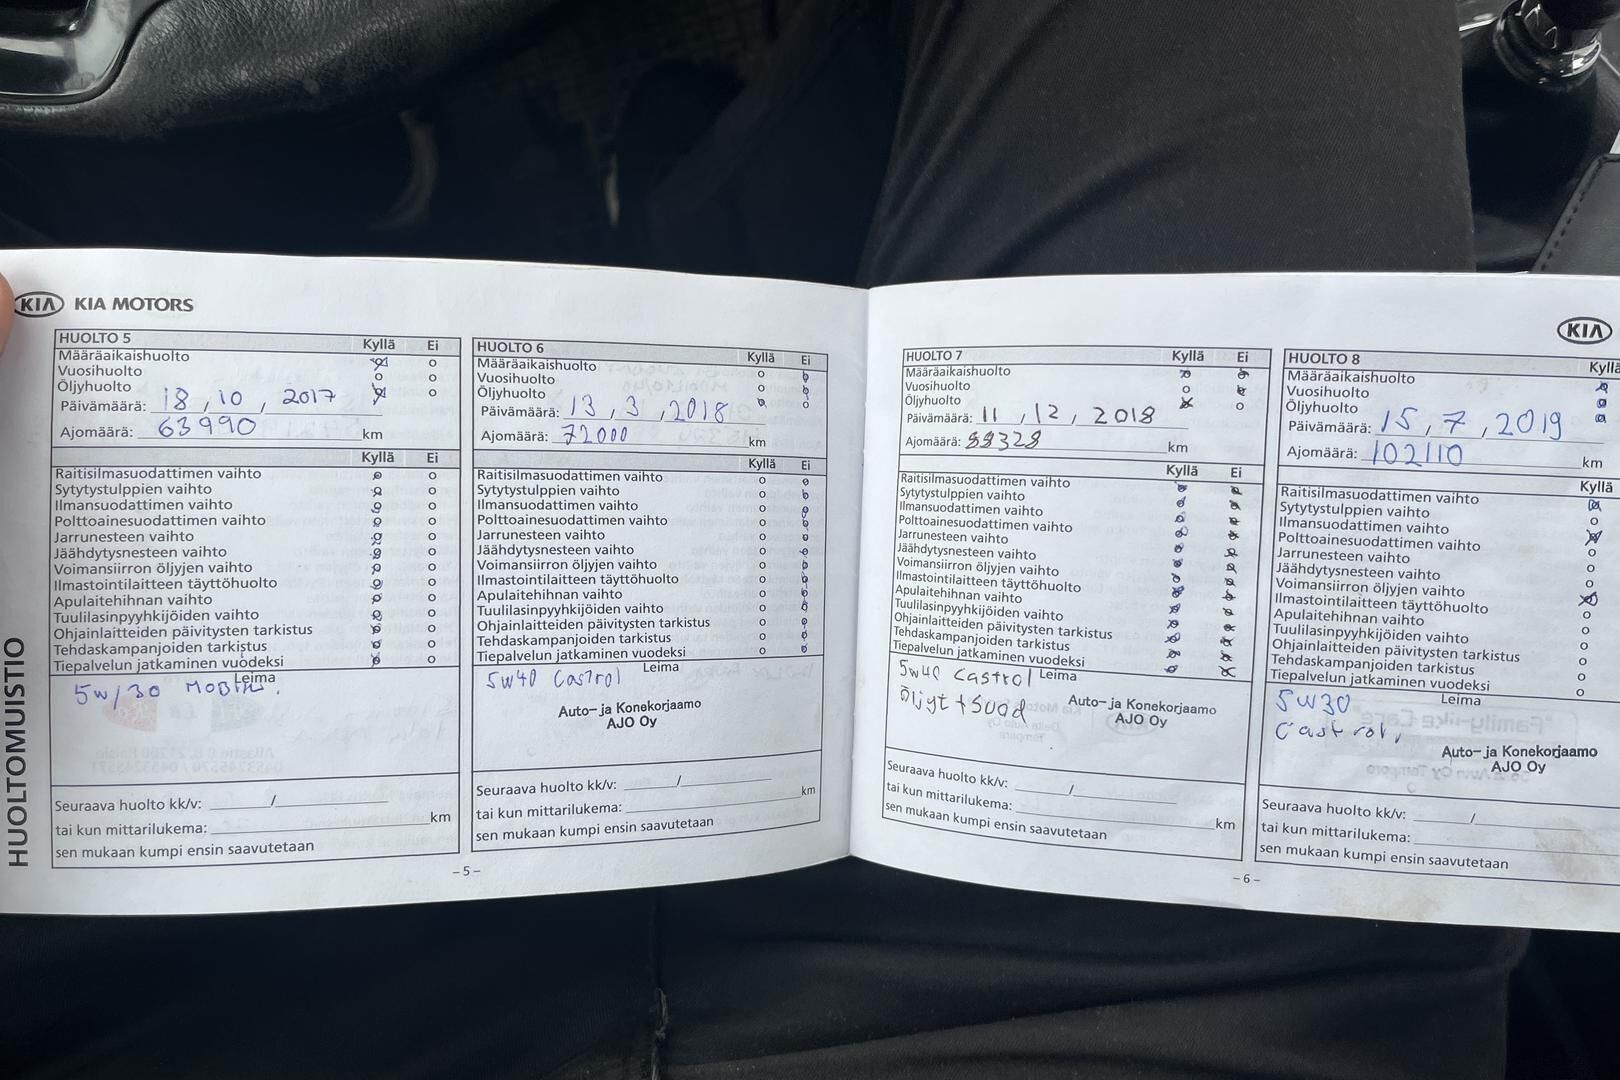 KIA KIA MOTORS
HUOLTOMUISTIO
HUOLTO 5 Kyllä Ei
Määräaikaishuolto
Vuosihuolto
Öljyhuolto
Päivämäärä: 18, 10, 2017
Ajomäärä: 63990 km
Kyllä Ei
Raitisilmasuodattimen vaihto
Sytytystulppien vaihto
Ilmansuodattimen vaihto
Polttoainesuodattimen vaihto
Jarrunesteen vaihto
Jäähdytysnesteen vaihto
Voimansiirron öljyjen vaihto
Ilmastointilaitteen täyttöhuolto
Apulaitehihnan vaihto
Tuulilasinpyyhkijöiden vaihto
Ohjainlaitteiden päivitysten tarkistus
Tehdaskampanjoiden tarkistus
Tiepalvelun jatkaminen vuodeksi
Leima
5w/30
Seuraava huolto kk/v: /
tai kun mittarilukema: km
sen mukaan kumpi ensin saavutetaan
HUOLTO 6 Kyllä Ei
Määräaikaishuolto
Vuosihuolto
Öljyhuolto
Päivämäärä: 13, 3, 2018
Ajomäärä: 72000 km
Kyllä Ei
Raitisilmasuodattimen vaihto
Sytytystulppien vaihto
Ilmansuodattimen vaihto
Polttoainesuodattimen vaihto
Jarrunesteen vaihto
Jäähdytysnesteen vaihto
Voimansiirron öljyjen vaihto
Ilmastointilaitteen täyttöhuolto
Apulaitehihnan vaihto
Tuulilasinpyyhkijöiden vaihto
Ohjainlaitteiden päivitysten tarkistus
Tehdaskampanjoiden tarkistus
Tiepalvelun jatkaminen vuodeksi
5w40 Castrol Leima
Auto- ja Konekorjaamo
AJO Oy
Seuraava huolto kk/v: /
tai kun mittarilukema: km
sen mukaan kumpi ensin saavutetaan
- 5 -
KIA
HUOLTO 7 Kyllä Ei
Määräaikaishuolto
Vuosihuolto
Öljyhuolto
Päivämäärä: 11, 12, 2018
Ajomäärä: 88328 km
Kyllä Ei
Raitisilmasuodattimen vaihto
Sytytystulppien vaihto
Ilmansuodattimen vaihto
Polttoainesuodattimen vaihto
Jarrunesteen vaihto
Jäähdytysnesteen vaihto
Voimansiirron öljyjen vaihto
Ilmastointilaitteen täyttöhuolto
Apulaitehihnan vaihto
Tuulilasinpyyhkijöiden vaihto
Ohjainlaitteiden päivitysten tarkistus
Tehdaskampanjoiden tarkistus
Tiepalvelun jatkaminen vuodeksi
5w40 Castrol Leima
Auto- ja Konekorjaamo
AJO Oy
Seuraava huolto kk/v: /
tai kun mittarilukema: km
sen mukaan kumpi ensin saavutetaan
HUOLTO 8 Kyllä
Määräaikaishuolto
Vuosihuolto
Öljyhuolto
Päivämäärä: 15, 7, 2019
Ajomäärä: 102110 km
Kyllä
Raitisilmasuodattimen vaihto
Sytytystulppien vaihto
Ilmansuodattimen vaihto
Polttoainesuodattimen vaihto
Jarrunesteen vaihto
Jäähdytysnesteen vaihto
Voimansiirron öljyjen vaihto
Ilmastointilaitteen täyttöhuolto
Apulaitehihnan vaihto
Tuulilasinpyyhkijöiden vaihto
Ohjainlaitteiden päivitysten tarkistus
Tehdaskampanjoiden tarkistus
Tiepalvelun jatkaminen vuodeksi
Leima
5W30
Castrol,
Auto- ja Konekorjaamo
AJO Oy
Seuraava huolto kk/v: /
tai kun mittarilukema:
sen mukaan kumpi ensin saavutetaan
- 6 -